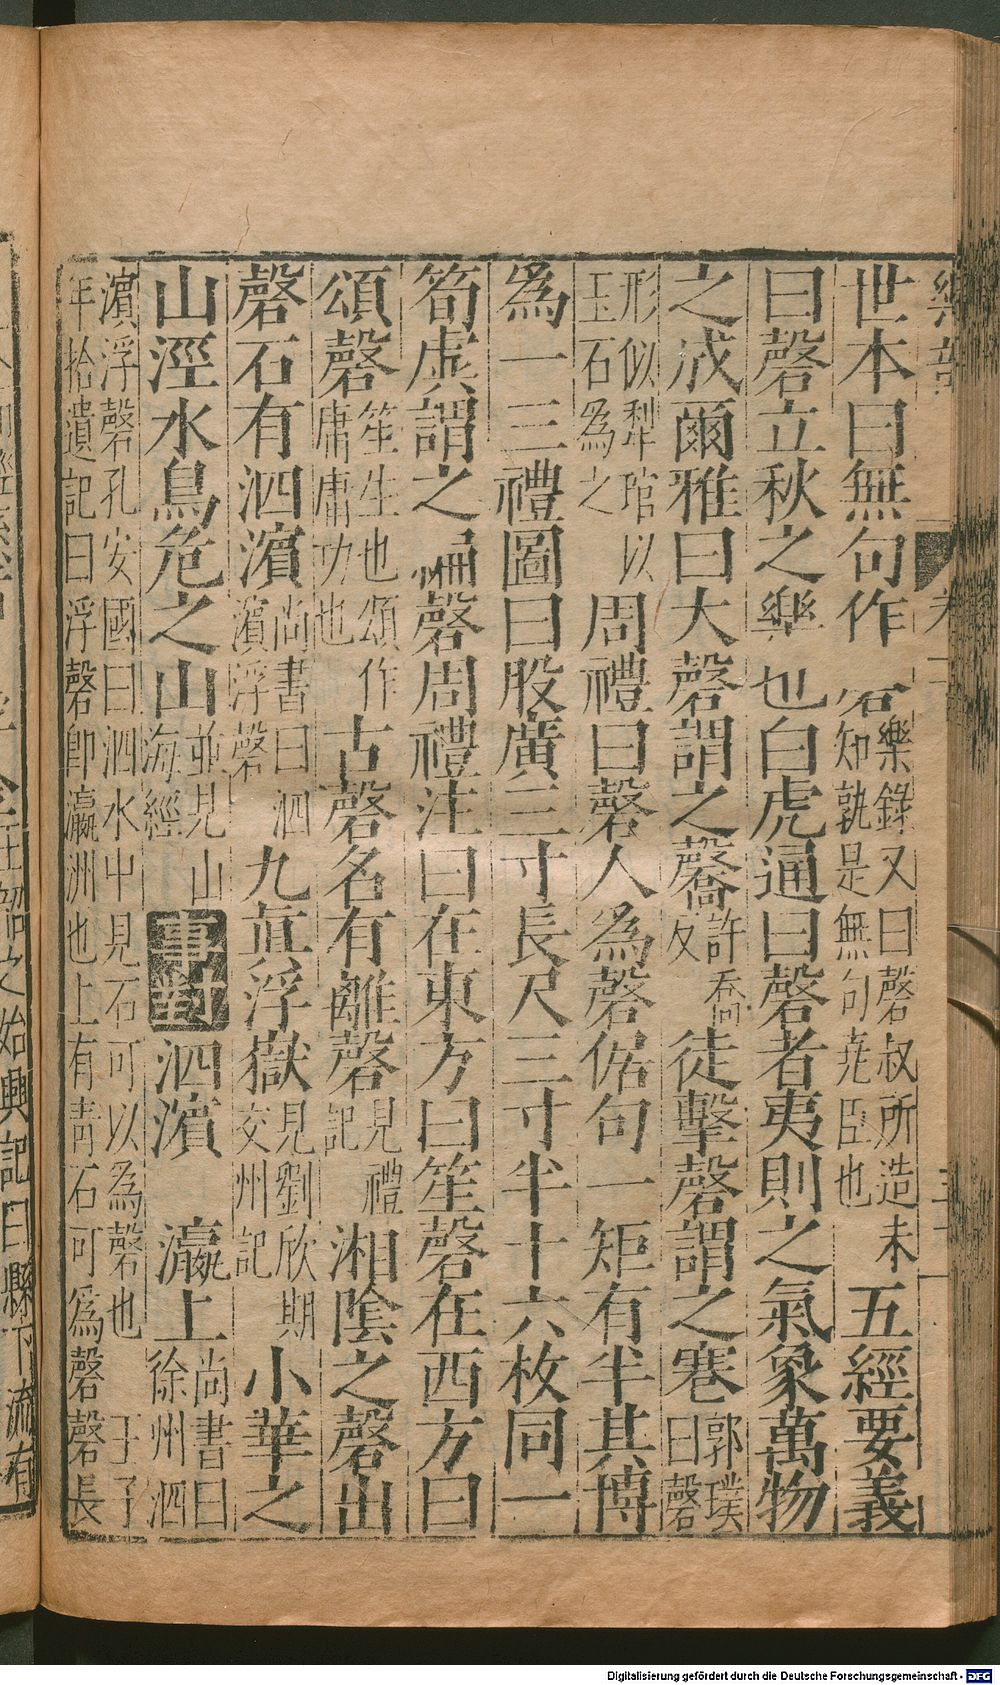 世本曰無句作磬樂錄又曰磬叔所造未知孰是無句堯臣也五經要義
曰磬立秋之樂也白虎通曰磬者夷則之氣象萬物
之成爾雅曰大磬謂之毊許喬反徒擊磬謂之寋郭璞曰磬
形似犁錧以玉石為之周禮曰磬人為磬倨句一矩有半其博
為一三禮圖曰股廣三寸長尺三寸半十六枚同一
筍虡謂之編磬周禮注曰在東方曰笙磬在西方曰
頌磬笙生也頌作庸庸功也古磬名有離磬見禮記湘陰之磬出
磬石有泗濱尚書曰泗濱浮磬九真浮嶽見劉欣期交州記小華之
山涇水鳥危之山並見山海經事對泗濱 瀛上尚書曰徐州泗
濱浮磬孔安國曰泗水中見石可以為磬也王子年拾遺記曰浮磬即瀛洲也上有青石可為磬磬長
樂部
卷
Digitalisierung gefördert durch die Deutsche Forschungsgemeinschaft - DFG